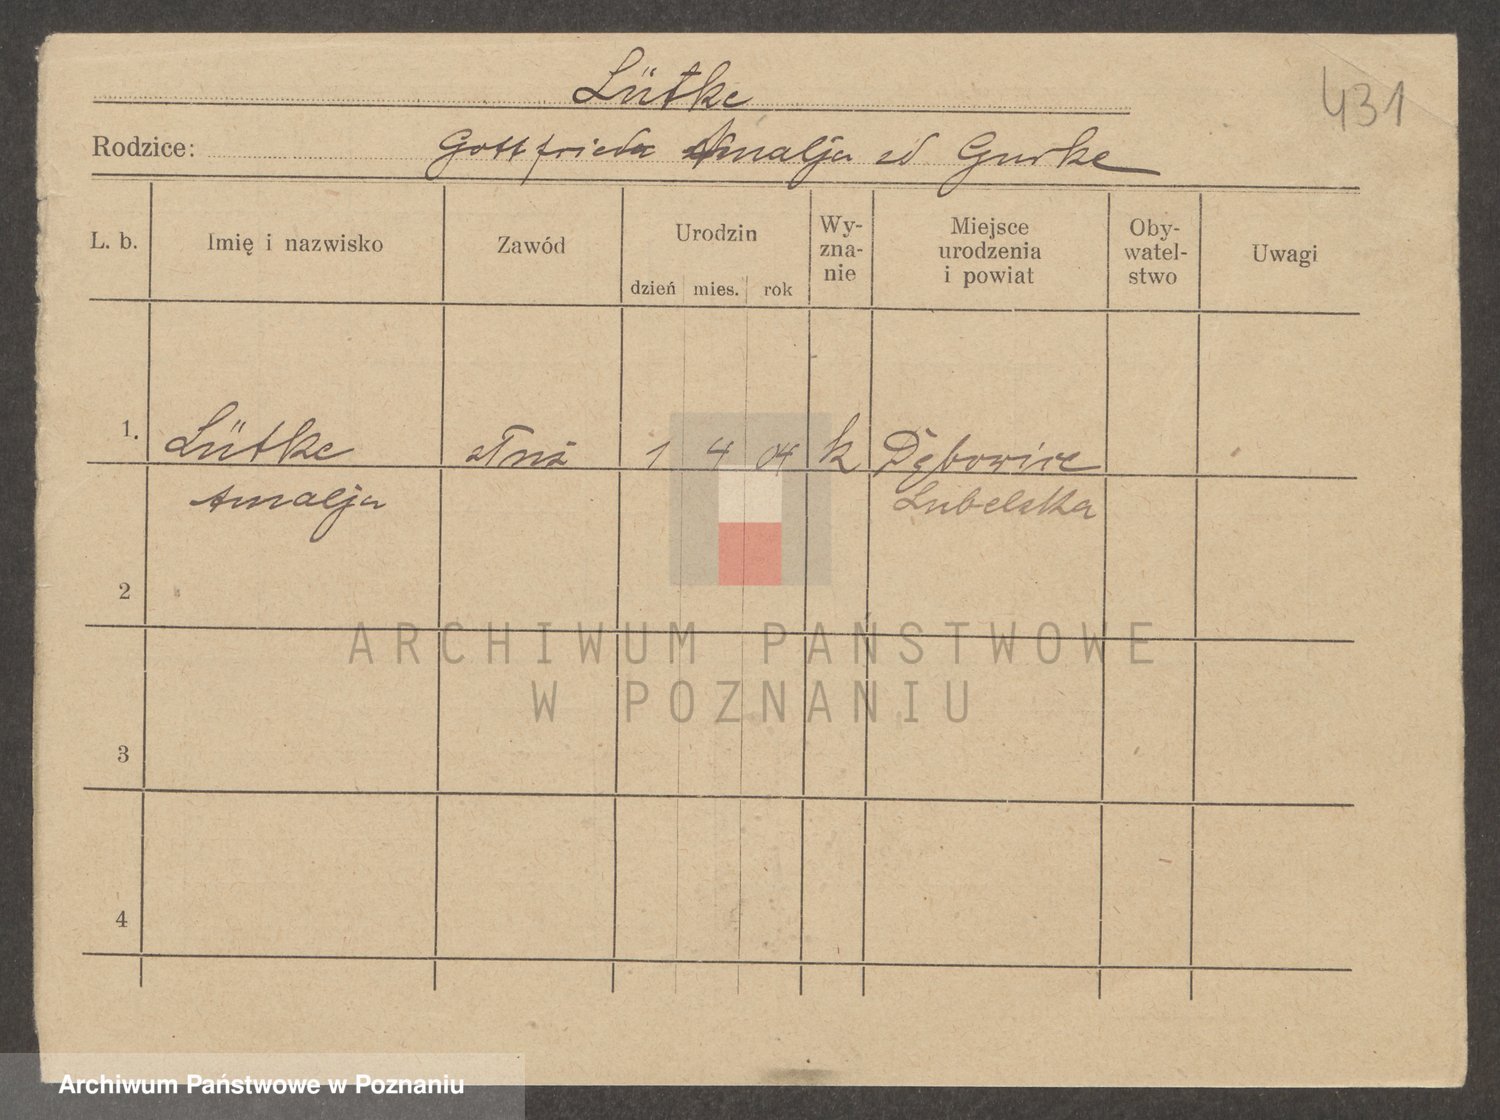 Lütke
431
Rodzice: Gottfrieda Amalja Gurke
L. b. Imię i nazwisko Zawód Urodzin dzień mies. rok Wy-
zna-
nie Miejsce
urodzenia
i powiat Oby-
watel-
stwo Uwagi
1. Lütke 1 4 04 k Dębowice
Amalja Lubelska
2
3
4
ARCHIWUM PAŃSTWOWE
W POZNANIU
Archiwum Państwowe w Poznaniu